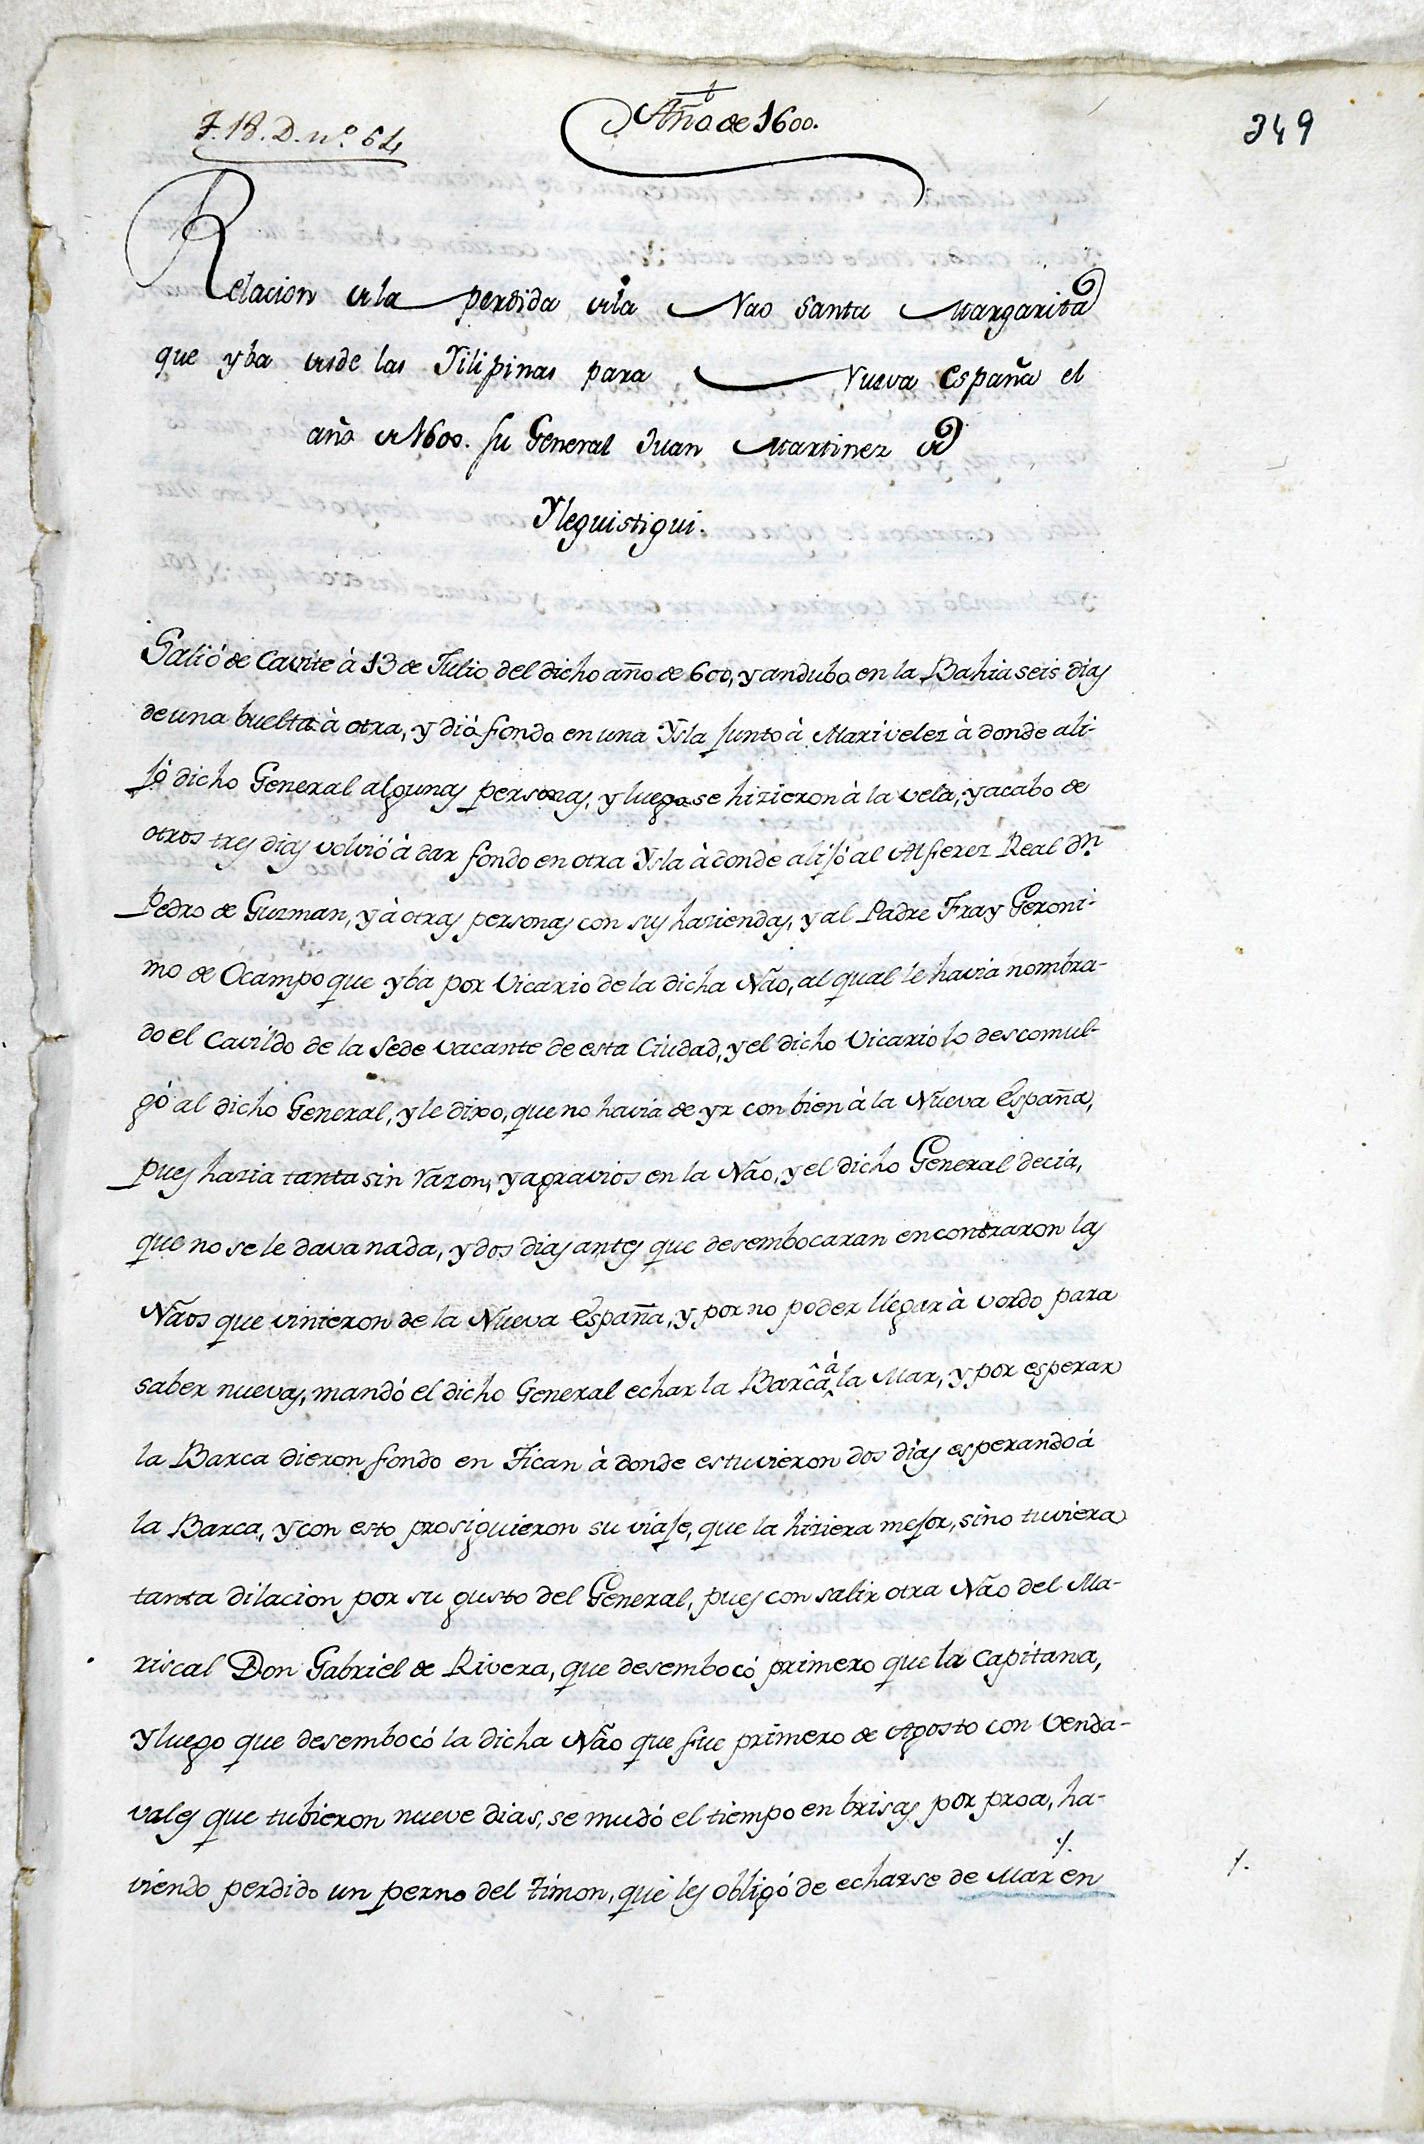 T. 18. D. nº. 64
Año de 1600.
349
Relacion de la perdida de la Nao Santa Margarita
que yba desde las Filipinas para Nueva España el
año de 1600. su General Juan Martinez de
Yleguistigui.
Salió de Cavite à 13 de Julio del dicho año de 600, y andubo en la Bahia seis dias
de una buelta à otra, y dió fondo en una Ysla junto à Marivelez à donde ali-
jó dicho General algunas personas, y luego se hizieron à la vela, y acabo de
otros tres dias volvió à dar fondo en otra Ysla à donde alijó al Alferez Real Dn.
Pedro de Guzman, y à otras personas con sus haziendas, y al Padre Fray Geroni-
mo de Ocampo que yba por Vicario de la dicha Não, al qual le havia nombra-
do el Cavildo de la Sede vacante de esta Ciudad, y el dicho Vicario lo descomul-
gó al dicho General, y le dixo, que no havia de yr con bien à la Nueva España,
pues hazia tanta sin razon, y agravios en la Não, y el dicho General decia,
que no se le dava nada, y dos dias antes que desembocaran encontraron las
Nãos que vinieron de la Nueva España, y por no poder llegar à vordo para
saber nuevas, mandó el dicho General echar la Barca à la Mar, y por esperar
la Barca dieron fondo en Tican à donde estuvieron dos dias esperando á
la Barca, y con esto prosiguieron su viaje, que la hiziera mejor, sino tuviera
tanta dilacion por su gusto del General, pues con salir otra Não del Ma-
riscal Don Gabriel de Rivera, que desembocó primero que la Capitana,
y luego que desembocó la dicha Não que fue primero de Agosto con Venda-
vales que tubieron nueve dias, se mudó el tiempo en brisas por proa, ha-
viendo perdido un perno del timon, que les obligó de echarse de Mar en